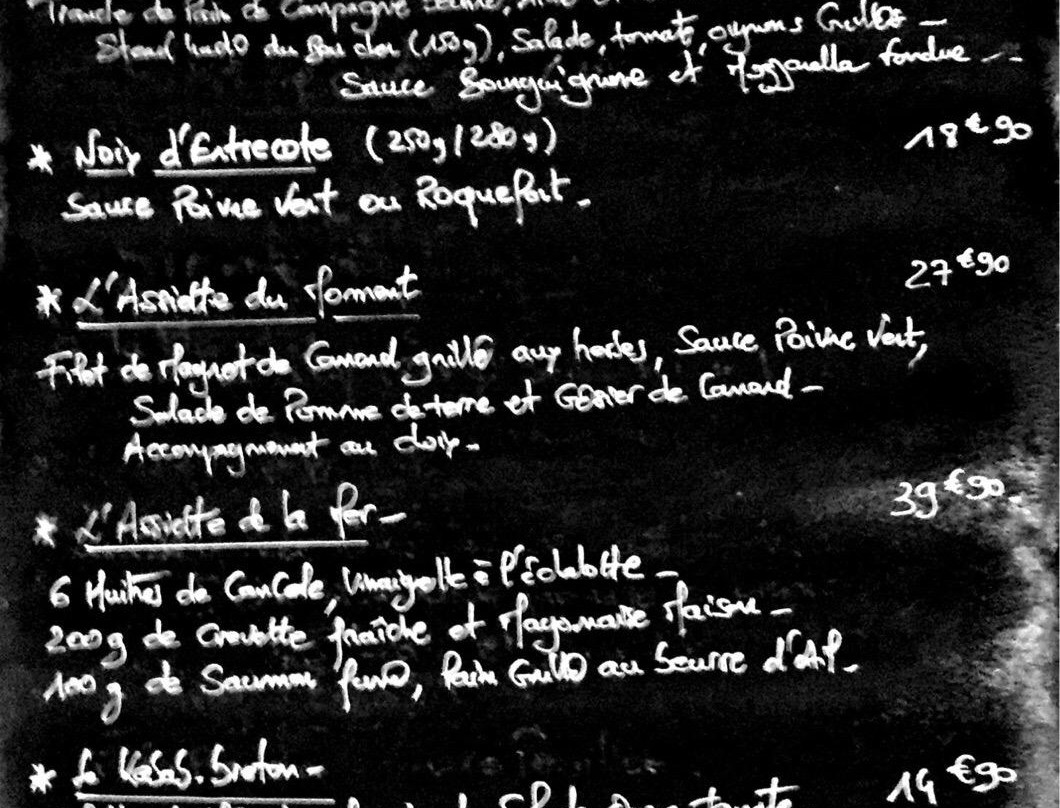 Tranche de Pain de Campagne
Steak haché du (150g), Salade, tomate, oignons Grillés -
Sauce Bourguignonne et Mozzarella fondue --
* Noix d'Entrecote (250g/280g) 18€90
Sauce Poivre Vert ou Roquefort.
* L'Assiette du Moment 27€90
Filet de Magret de Canard grillé aux herbes, Sauce Poivre Vert,
Salade de Pomme de terre et Gésier de Canard -
Accompagnement au choix -
* L'Assiette de la Mer - 39€90
6 Huitres de Cancale, Vinaigrette à l'échalotte -
200g de Crevette fraîche et Mayonnaise Maison -
100g de Saumon fumé, Pain Grillé au Beurre d'Ail -
* Le Kebab. Breton - 14€90